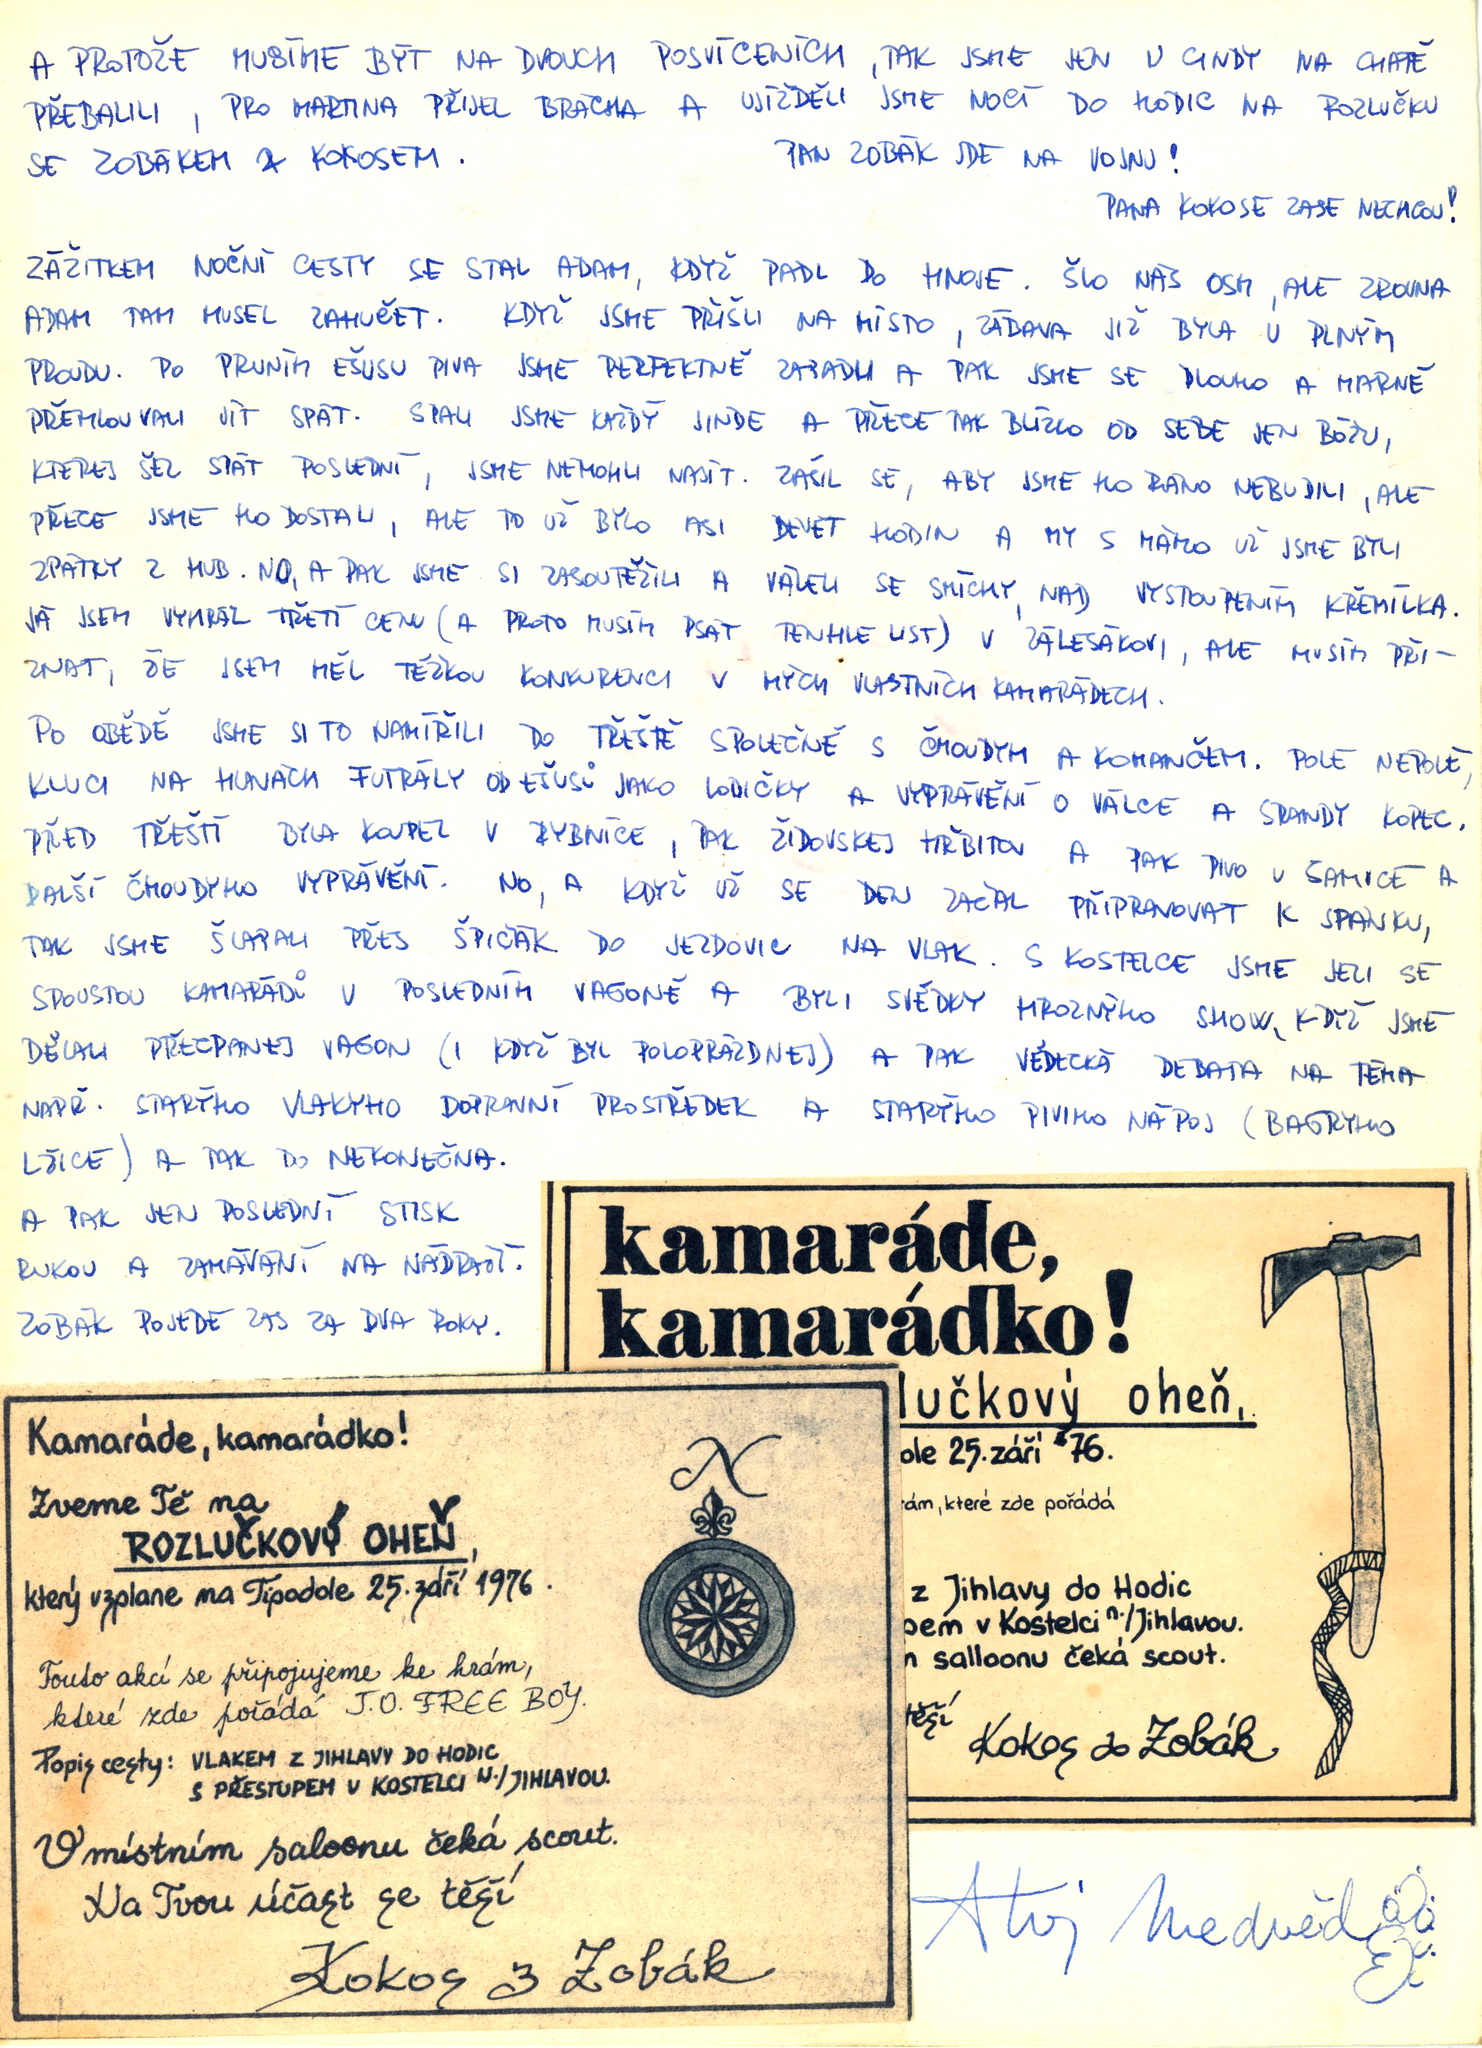 A PROTOŽE MUSÍME BÝT NA DVOUCH POSVÍCENÍCH, TAK JSME JEN U CINDY NA CHATĚ
PŘEBALILI, PRO MARTINA PŘIJEL BRÁCHA A UJÍŽDĚLI JSME NOCÍ DO HODIC NA ROZLUČKU
SE ZOBÁKEM A KOKOSEM. PAN ZOBÁK JDE NA VOJNU!
PANA KOKOSE ZASE NECHCOU!
ZÁŽITKEM NOČNÍ CESTY SE STAL ADAM, KDYŽ PADL DO HNOJE. ŠLO NÁS OSM, ALE ZROVNA
ADAM TAM MUSEL ZAHUČET. KDYŽ JSME PŘIŠLI NA MÍSTO, ZÁBAVA JIŽ BYLA V PLNÝM
PROUDU. PO PRVNÍM EŠUSU PIVA JSME PERFEKTNĚ ZAPADLI A PAK JSME SE DLOUHO A MARNĚ
PŘEMLOUVALI JÍT SPÁT. SPALI JSME KAŽDÝ JINDE A PŘECE TAK BLÍZKO OD SEBE JEN BÓŽU,
KTEREJ ŠEL SPÁT POSLEDNÍ, JSME NEMOHLI NAJÍT. ZAŠIL SE, ABY JSME HO RÁNO NEBUDILI, ALE
PŘECE JSME HO DOSTALI, ALE TO UŽ BYLO ASI DEVĚT HODIN A MY S MÁMO UŽ JSME BYLI
ZPÁTKY Z HUB. NO, A PAK JSME SI ZASOUTĚŽILI A VÁLELI SE SMÍCHY, NAD VYSTOUPENÍM KŘEMÍLKA.
JÁ JSEM VYHRÁL TŘETÍ CENU (A PROTO MUSÍM PSÁT TENHLE LIST) V ZÁLESÁKOVI, ALE MUSÍM PŘI-
ZNAT, ŽE JSEM MĚL TĚŽKOU KONKURENCI V MÝCH VLASTNÍCH KAMARÁDECH.
PO OBĚDĚ JSME SI TO NAMÍŘILI DO TŘEŠTĚ SPOLEČNĚ S ČMOUDYM A KOMANČEM. POLE NEPOLE,
KLUCI NA HLAVÁCH FUTRÁLY OD EŠUSŮ JAKO LODIČKY A VYPRÁVĚNÍ O VÁLCE A SRANDY KOPEC.
PŘED TŘEŠTÍ BYLA KOUPEL V RYBNÍCE, PAK ŽIDOVSKEJ HŘBITOV A PAK PIVO V ŠAMICE A
DALŠÍ ČMOUDYHO VYPRÁVĚNÍ. NO, A KDYŽ UŽ SE DEN ZAČAL PŘIPRAVOVAT K SPÁNKU,
TAK JSME ŠLAPALI PŘES ŠPIČÁK DO JEZDOVIC NA VLAK. S KOSTELCE JSME JELI SE
SPOUSTOU KAMARÁDŮ V POSLEDNÍM VAGONĚ A BYLI SVĚDKY HROZNÝHO SHOW, KDYŽ JSME
DĚLALI PŘECPANEJ VAGON (I KDYŽ BYL POLOPRÁZDNEJ) A PAK VĚDECKÁ DEBATA NA TÉMA
NAPŘ. STARÝHO VLAKYHO DOPRAVNÍ PROSTŘEDEK A STARÝHO PIVIHO NÁPOJ (BAGRYHO
LŽICE) A TAK DO NEKONEČNA.
A PAK JEN POSLEDNÍ STISK
RUKOU A ZAMÁVÁNÍ NA NÁDRAŽÍ.
ZOBÁK POJEDE ZAS ZA DVA ROKY.
kamaráde,
kamarádko!
lučkový oheň,
ole 25. září 76.
rám, které zde pořádá
z Jihlavy do Hodic
pem v Kostelci n./Jihlavou.
m salloonu čeká scout.
těší
Kokos do Zobák
Kamaráde, kamarádko!
Zveme Tě na
ROZLUČKOVÝ OHEŇ,
který vzplane na Tipodole 25. září 1976.
N
Touto akcí se připojujeme ke hrám,
které zde pořádá T.O. FREE BOY.
Popis cesty: VLAKEM Z JIHLAVY DO HODIC
S PŘESTUPEM V KOSTELCI N./JIHLAVOU.
V místním saloonu čeká scout.
Na Tvou účast se těší
Kokos a Zobák
Ahoj Medvěd